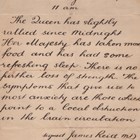 11 am.
The Queen has slightly
rallied since midnight
Her Majesty has taken more
food and has had some
refreshing sleep. There is no
further loss of strength. The
symptoms that give use to
most anxiety are those which
point to a local obstruction
in the brain circulation.
signed James Reid M.D.